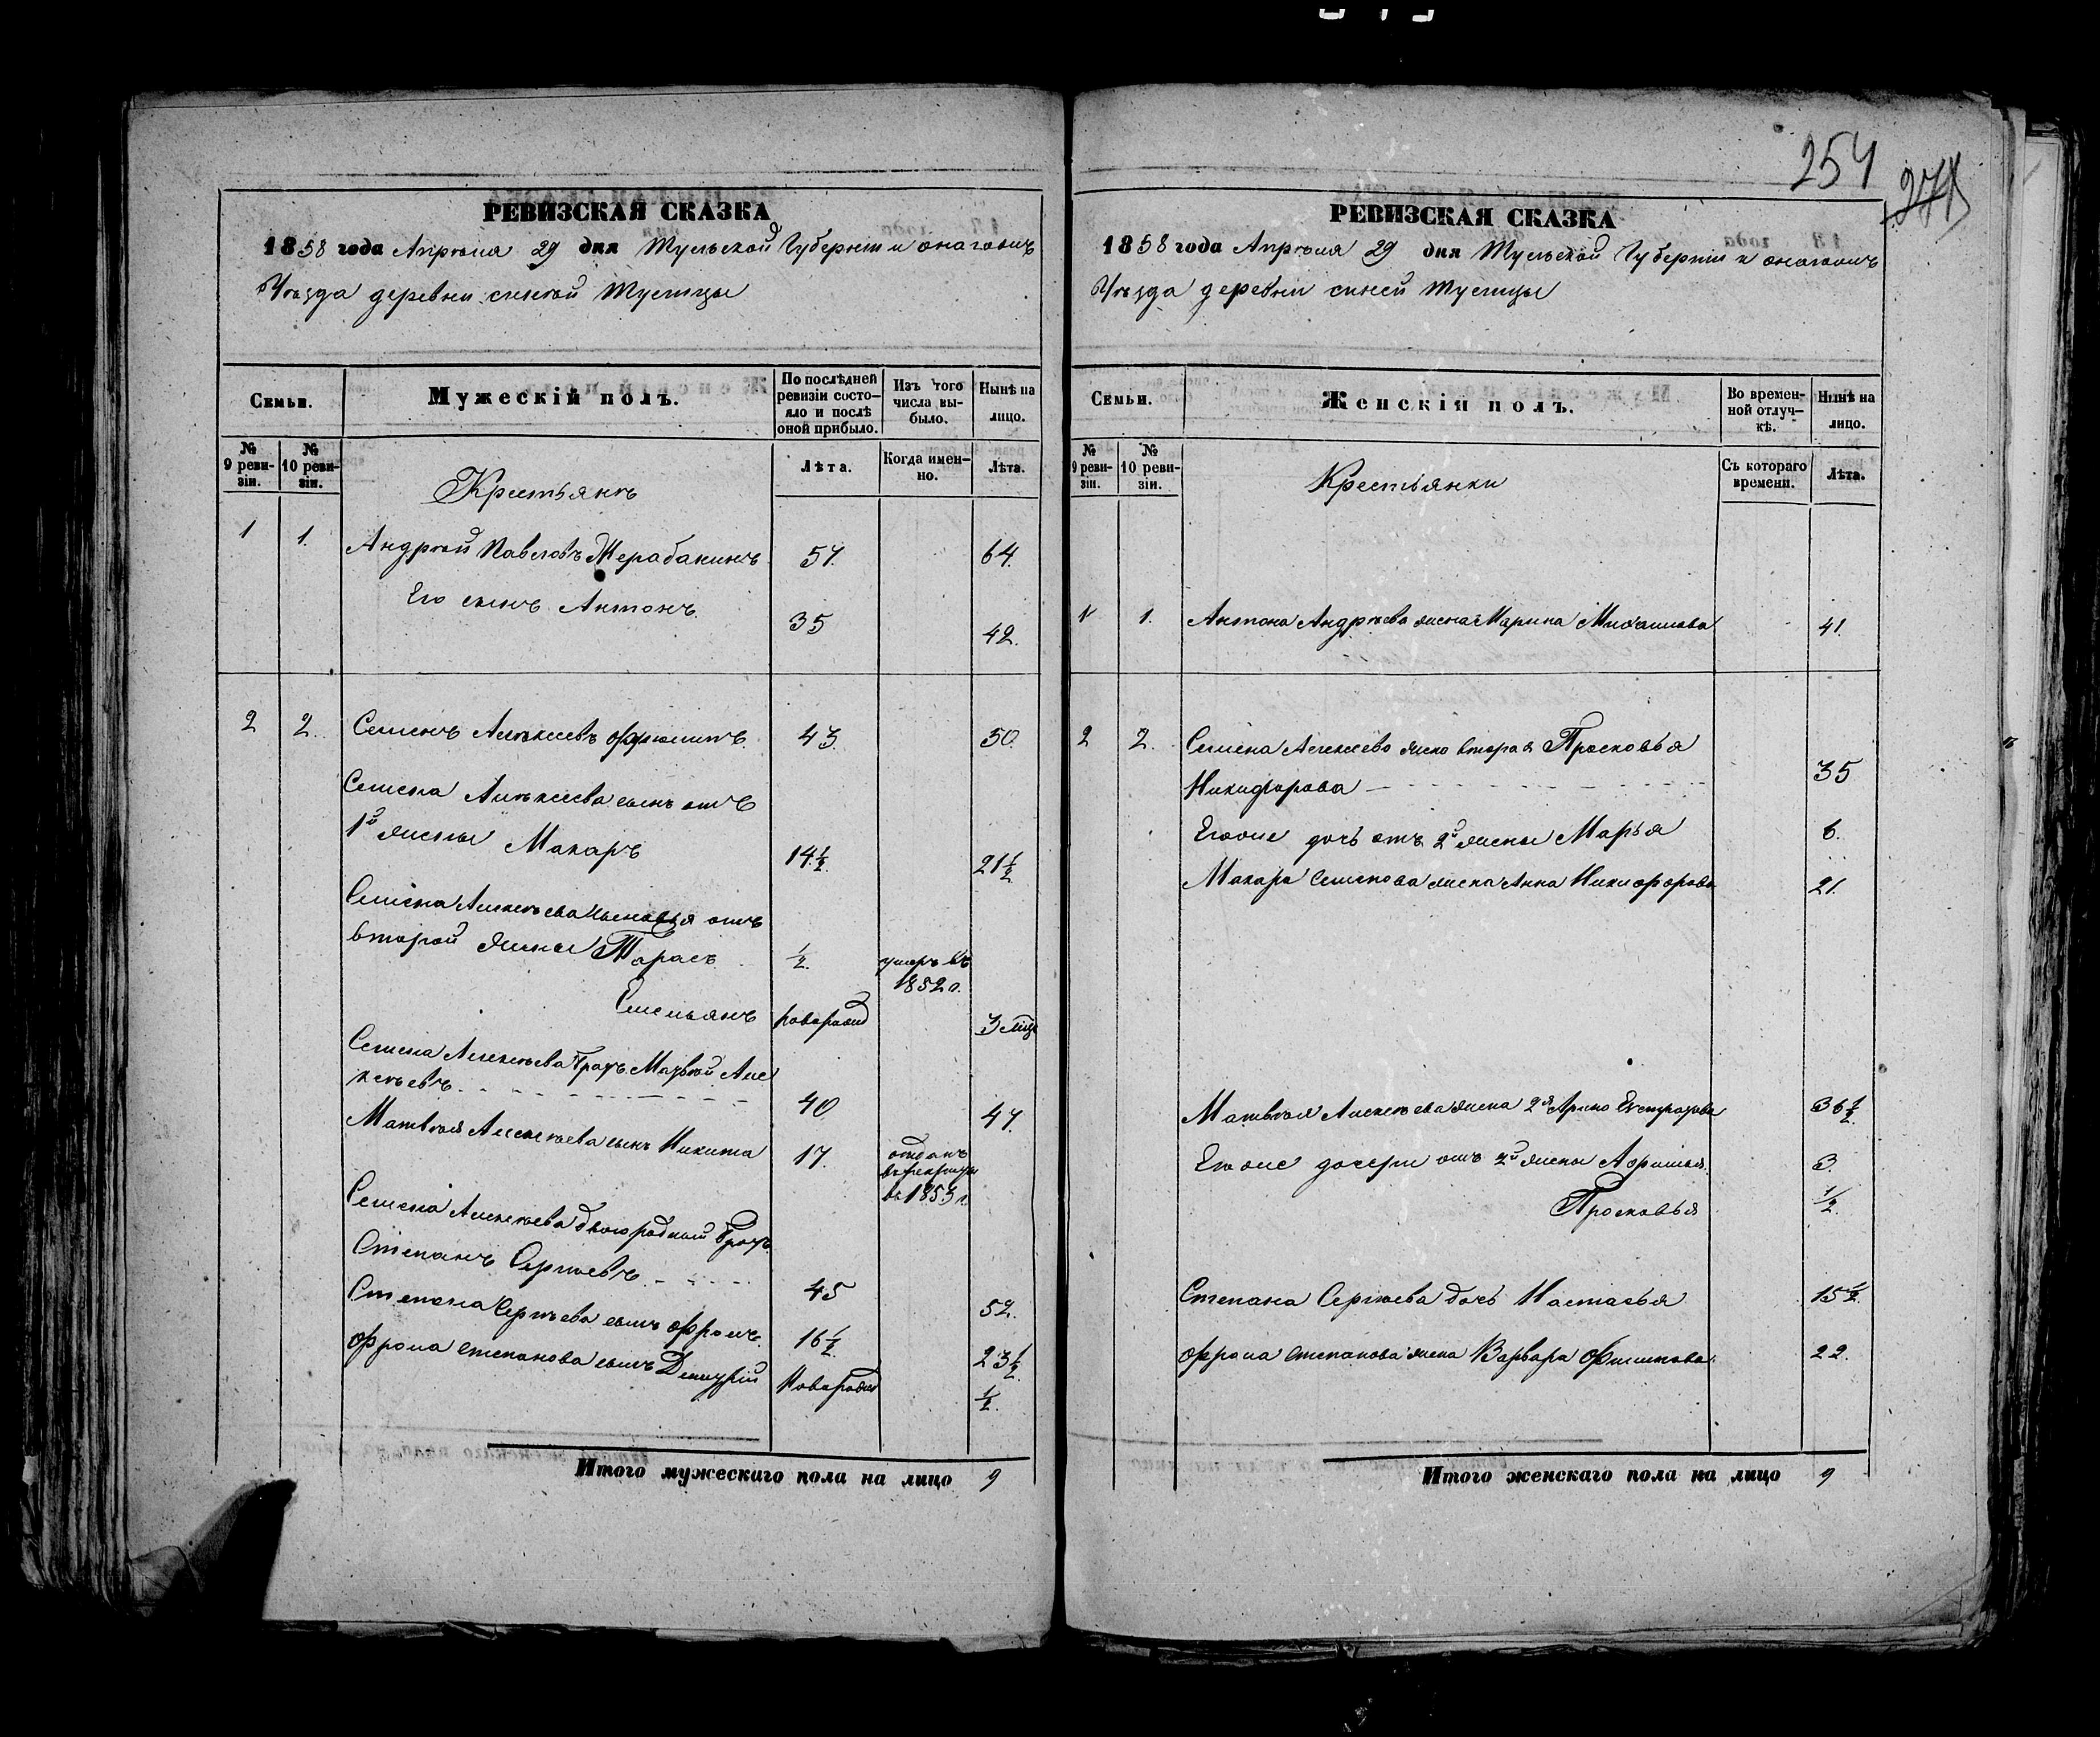 254
275
РЕВИЗСКАЯ СКАЗКА
1858 года Апрѣля 29 дня Тульской Губерніи и онагожъ
Уѣзда деревни синѣй Тулицы
Семьи.
Мужескій полъ.
По послѣдней ревизіи состояло и послѣ оной прибыло.
Изъ того числа выбыло.
Нынѣ на лицо.
№ 9 ревизіи.
№ 10 ревизіи.
Крестьянъ
Лѣта.
Когда именно.
Лѣта.
1 1. Андрѣй Павловъ 57. 64.
Его сынъ Антонъ. 35 42.
2 2. Семенъ Алѣксѣевъ 43. 50.
Семена Алѣксѣева сынъ отъ
1й жены Макаръ 14½. 21½.
Семена Алексѣева сыновья отъ
второй жены Тарасъ ½. умеръ въ 1852 г.
Емельянъ новорожд 3 мѣц
Семена Алексѣева братъ Матвѣй Але
ксѣевъ. 40 47.
Матвѣя Алексѣева сынъ Никита 17. отданъ в рекруты в 1853 г.
Семена Алексѣева двоюродный братъ
Степанъ Сергѣевъ 45 52.
Степана Сергѣева сынъ Фролъ 16½. 23½.
Фрола Степанова сынъ Дмитрій Новорожд ½.
Итого мужескаго пола на лицо 9
РЕВИЗСКАЯ СКАЗКА
1858 года Апрѣля 29 дня Тульской Губерніи и онагожъ
Уѣзда деревни синей Тулицы
Семьи.
Женскій полъ.
Во временной отлучкѣ.
Нынѣ на лицо.
№ 9 ревизіи.
№ 10 ревизіи.
Крестьянки
Съ котораго времени.
Лѣта.
1 1. Антона Андрѣева жена Марина Михаилова 41.
2 2. Семена Алексеева жена вторая Прасковья
Никифорова 35
Егоже дочь отъ 2й жены Марья 6.
Макара Семенова жена Анна Никифорова 21.
Матвѣя Алексѣева жена 2я Арина Евстратова 36½.
Егоже дочери отъ 2й жены 3.
Прасковья ½.
Степана Сергѣева дочь Настасья 15½.
Фрола Степанова жена Варвара Филипова. 22.
Итого женскаго пола на лицо 9